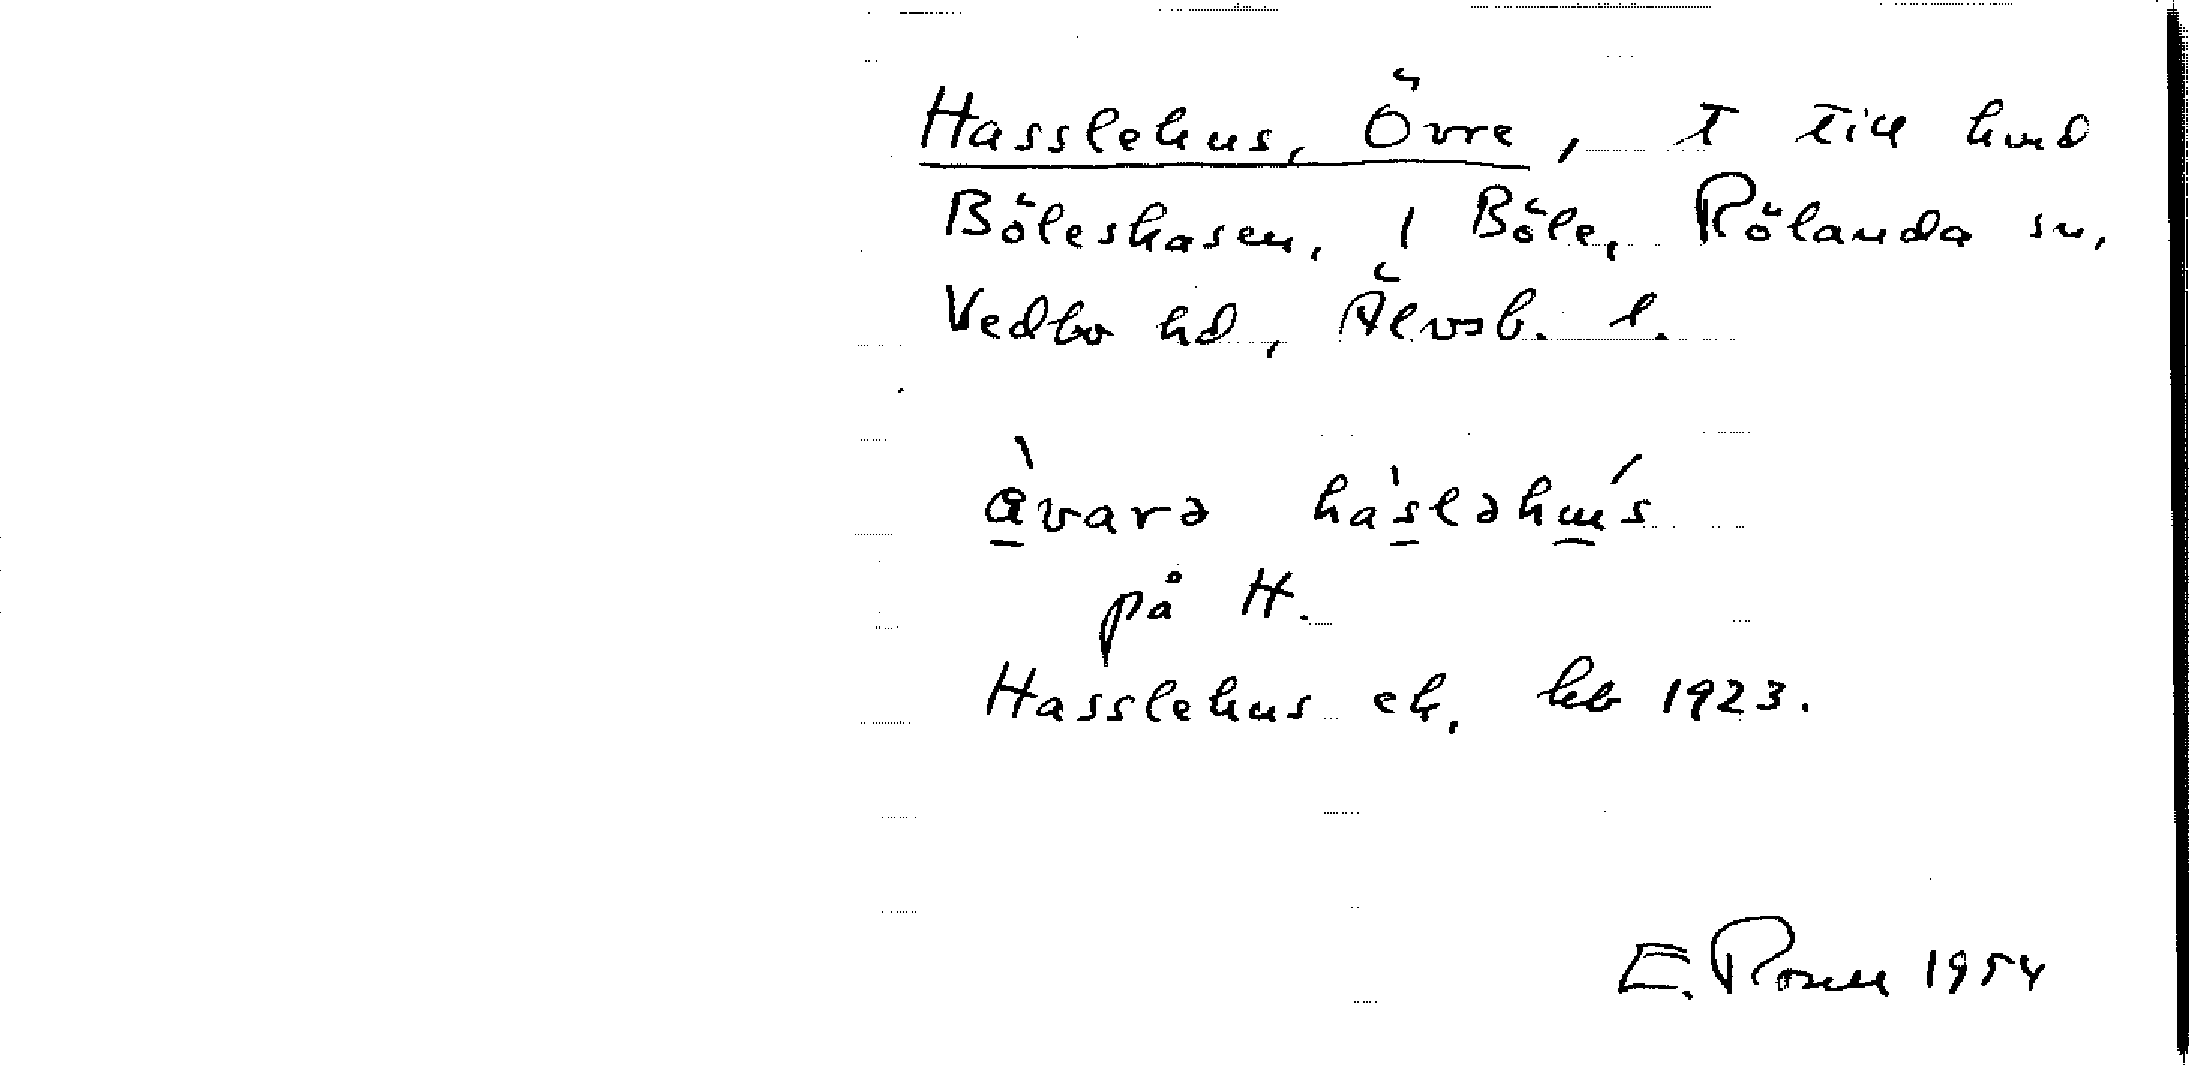 Hasslehus, Övre, T till hmd
Böleskasen, 1 Böle, Rölanda sn,
Vedbo hd, Älvsb. l.
på H.
Hasslehus ek. kb 1923.
E. Rosell 1954